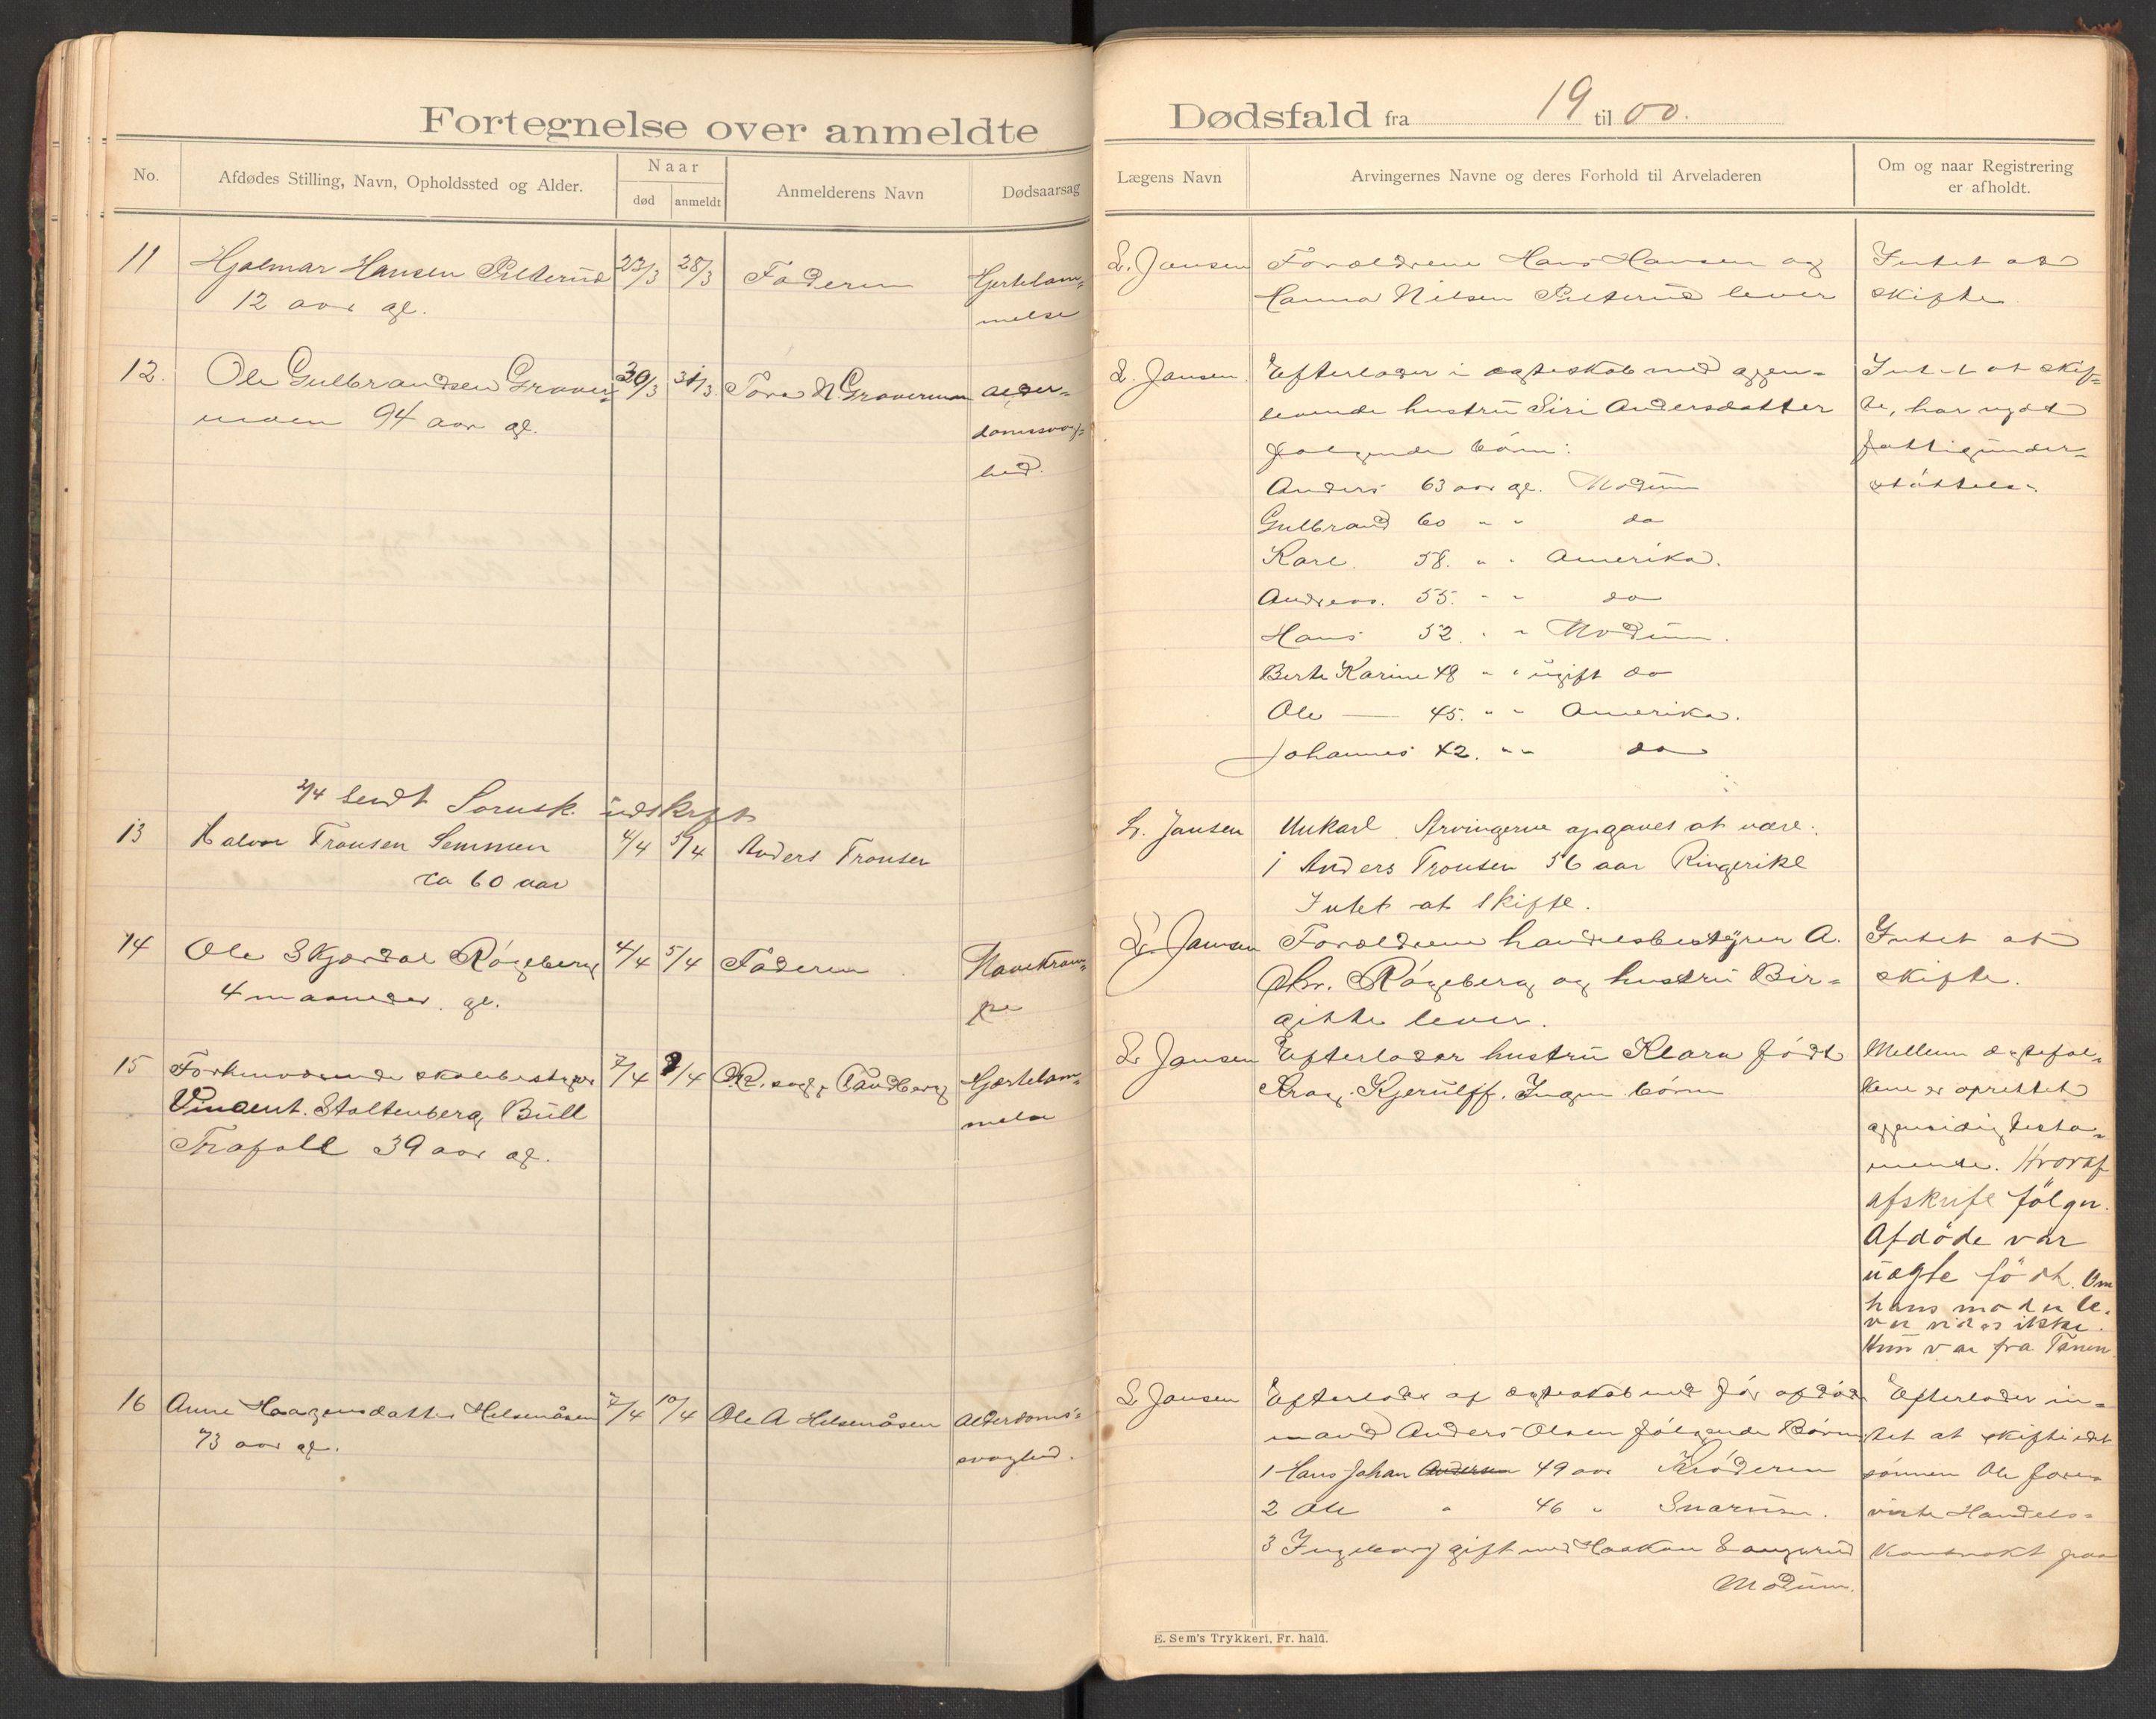 Fortegnelse over anmeldte
No.
Afdødes Stilling, Navn, Opholdssted og Alder.
Naar
død
anmeldt
Anmelderens Navn
Dødsaarsag
11
Hjalmar Hansen Pilterud
23/3
28/3
Faderen
Hjertelam=
12 aar gl.
melse
12.
Ole Gulbrandsen Graver=
30/3
31/3
Tora N. Gravermoen
alder=
moen 94 aar gl.
domssvag=
hed.
2/4 Sendt Sorensk. udskrft
13
Halvor Tronsen Semmen
4/4
5/4
Anders Tronsen
ca 60 aar
14
Ole Skjørdal Røgeberg
4/4
5/4
Faderen
Mavekram=
4 maaneder gl.
pe
15
Forhenværende skolebestyrer
7/4
9/4
Sandberg
Hjertelam=
Vincent Stoltenberg Bull
melse
39 aar gl.
16
Anne Haagensdatter Helsenåsen
7/4
10/4
Ole A Helsenåsen
Alderdoms=
73 aar gl.
svaghed.
Dødsfald fra 19 til 00.
Lægens Navn
Arvingernes Navne og deres Forhold til Arveladeren
Om og naar Registrering
er afholdt.
L. Jansen
Forældrene Hans Hansen og
Intet at
Hanna Nilsen Pilterud lever
skifte
L. Jansen
Efterlader i ægteskab med gjen=
Intet at skif=
levende hustru Siri Andersdatter
te, har nydt
følgende børn:
fattigunder=
Anders 63 aar gl. Modum
støttelse.
Gulbrand 60 " " do
Karl. 58. " " Amerika.
Andreas. 55. " " do
Hans 52. " " Modum.
Berte Karine 48 " " ugift do
Ole — 45. " " Amerika.
Johannes 42. " " do
L. Jansen
Unkarl Arvingerne opgaves at være:
1 Anders Tronsen 56 aar Ringerike
Intet at skifte.
L. Jansen
Forældrene handelsbestyrer A.
Intet at
Chr. Røgeberg og hustru Bir=
skifte.
gitte lever.
L. Jansen
Efterlader hustru Klara født
Mellem ægtefol=
Krag Kjerulff. Ingen børn
kene er oprettet
gjensidig testa=
mente. Hvoraf
afskrift følger.
Afdøde var
uægte født. Om
hans moder le=
ver vides ikke.
Hun var fra
L. Jansen
Efterlader af ægteskab med før afdøde
Efterlader in=
mand Anders Olsen følgende Børn
tet at skifte idet
1 Hans Johan Andersen 49 aar Krøderen
sønnen Ole fore=
2 Ole " 46 " Snarum.
viste Handels=
3 Ingeborg gift med Haakon Langerud
kontrakt paa
Modum.
E. Sem's Trykkeri, Fr. hald.